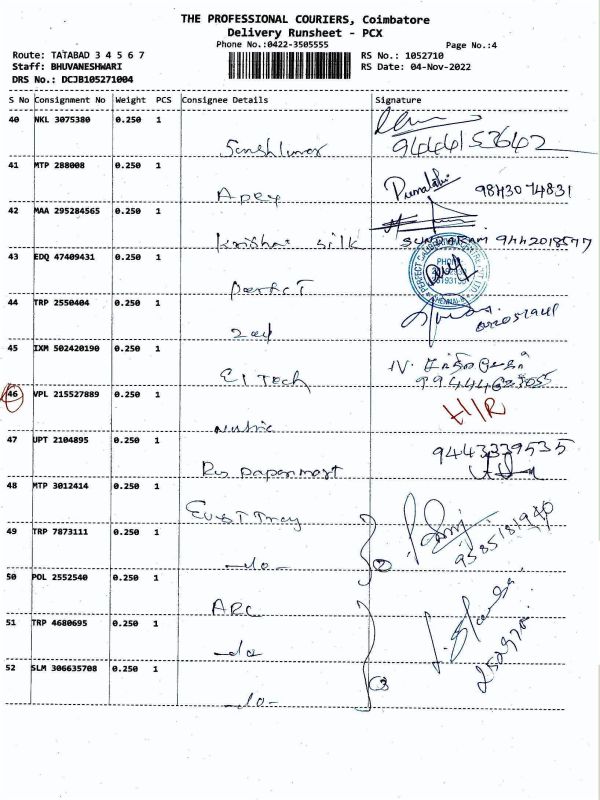 THE PROFESSIONAL COURIERS, Coimbatore
Delivery Runsheet - PCX
Phone No.:0422-3505555
Page No.:4
Route: TATABAD 3 4 5 6 7
RS No.: 1052710
Staff: BHUVANESHWARI
RS Date: 04-Nov-2022
DRS No.: DCJB105271004
S No Consignment No Weight PCS Consignee Details Signature
40 NKL 3075380 0.250 1
9444153642
41 MTP 288008 0.250 1
Apex 9843074831
42 MAA 295284565 0.250 1
Krishna Silk SUNDARAM 9442018577
43 EDQ 47409431 0.250 1
PerfecT
44 TRP 2550404 0.250 1
45 IXM 502420190 0.250 1
EI Tech
46 VPL 215527889 0.250 1
H/R
47 UPT 2104895 0.250 1
9443339535
48 MTP 3012414 0.250 1
49 TRP 7873111 0.250 1
-do- 2 9585181940
50 POL 2552540 0.250 1
ARC
51 TRP 4680695 0.250 1
-do
52 SLM 306635708 0.250 1
-do- 3